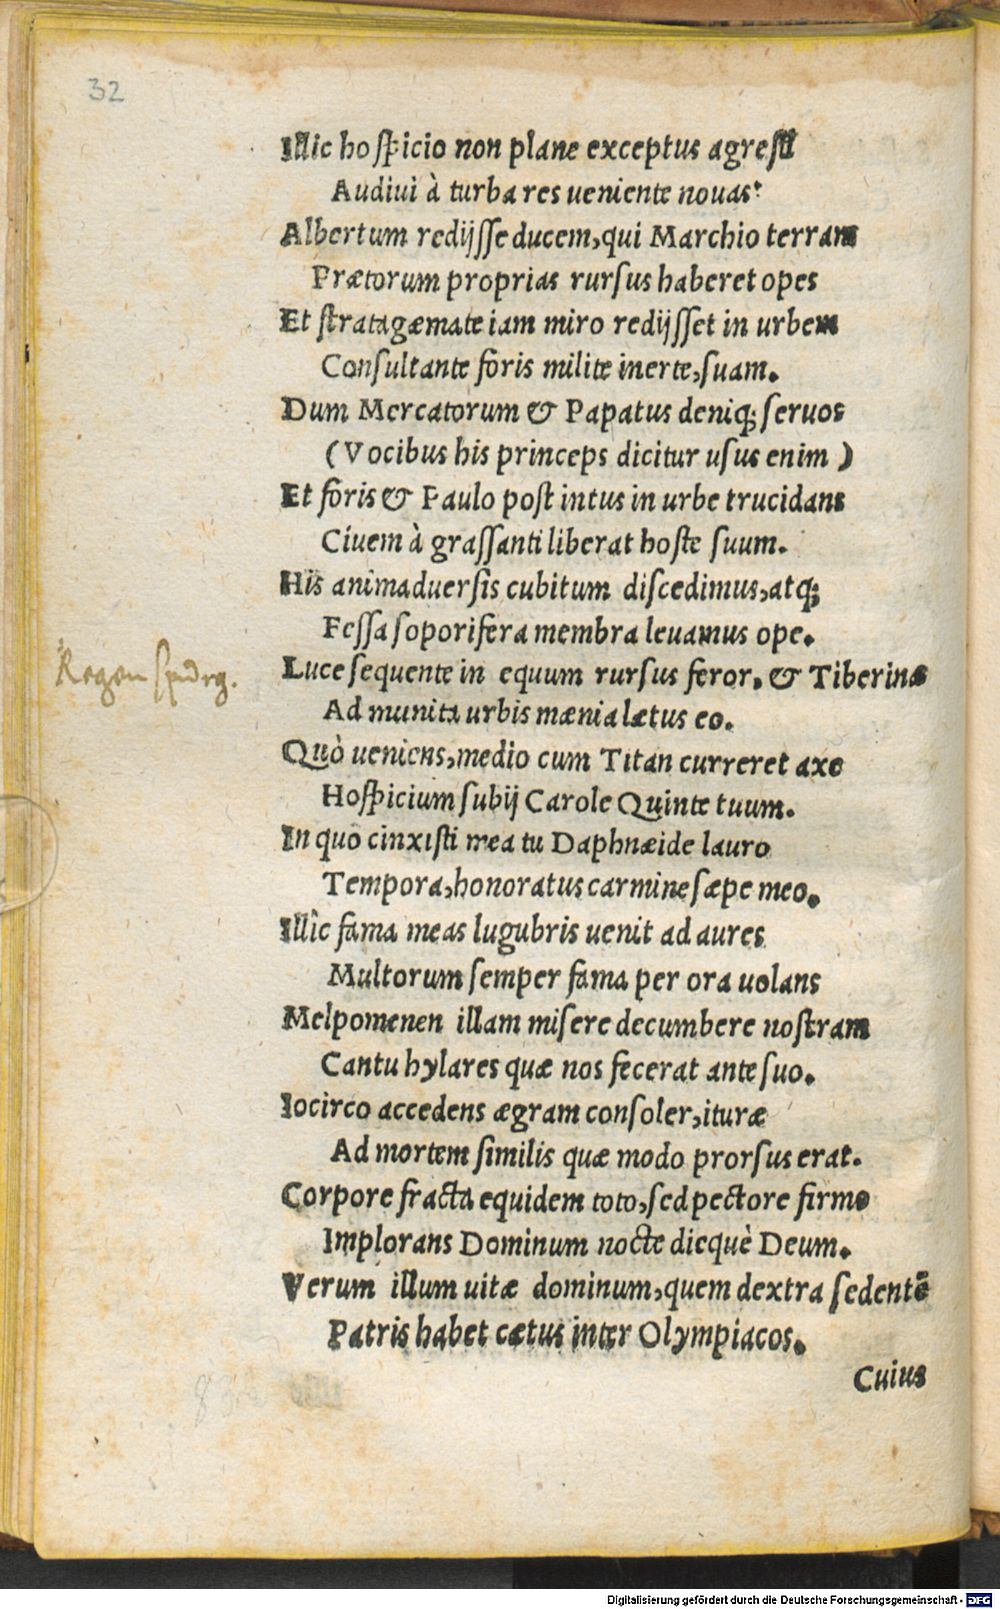 32
Illic hospicio non plane exceptus agresti
Audiui à turba res ueniente nouas:
Albertum redijsse ducem, qui Marchio terram
Prætorum proprias rursus haberet opes
Et stratagæmate iam miro redijsset in urbem
Consultante foris milite inerte, suam.
Dum Mercatorum & Papatus deniq; seruos
(Vocibus his princeps dicitur usus enim)
Et foris & Paulo post intus in urbe trucidans
Ciuem à grassanti liberat hoste suum.
His animaduersis cubitum discedimus, atq;
Fessa soporifera membra leuamus ope.
Luce sequente in equum rursus feror. & Tiberinæ
Ad munita urbis mænia lætus eo.
Quò ueniens, medio cum Titan curreret axe
Hospicium subij Carole Quinte tuum.
In quo cinxisti mea tu Daphnæide lauro
Tempora, honoratus carmine sæpe meo.
Illic fama meas lugubris uenit ad aures
Multorum semper fama per ora uolans
Melpomenen illam misere decumbere nostram
Cantu hylares quæ nos fecerat ante suo.
Iocirco accedens ægram consoler, ituræ
Ad mortem similis quæ modo prorsus erat.
Corpore fracta equidem toto, sed pectore firmo
Implorans Dominum nocte dieque Deum.
Verum illum uitæ dominum, quem dextra sedentē
Patris habet cætus inter Olympiacos.
Cuius
Digitalisierung gefördert durch die Deutsche Forschungsgemeinschaft - DFG